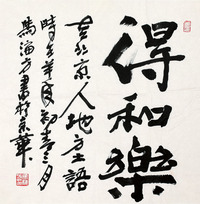 得和樂
老北京人地方土語
時在羊年初春三月
馬海方書於京華